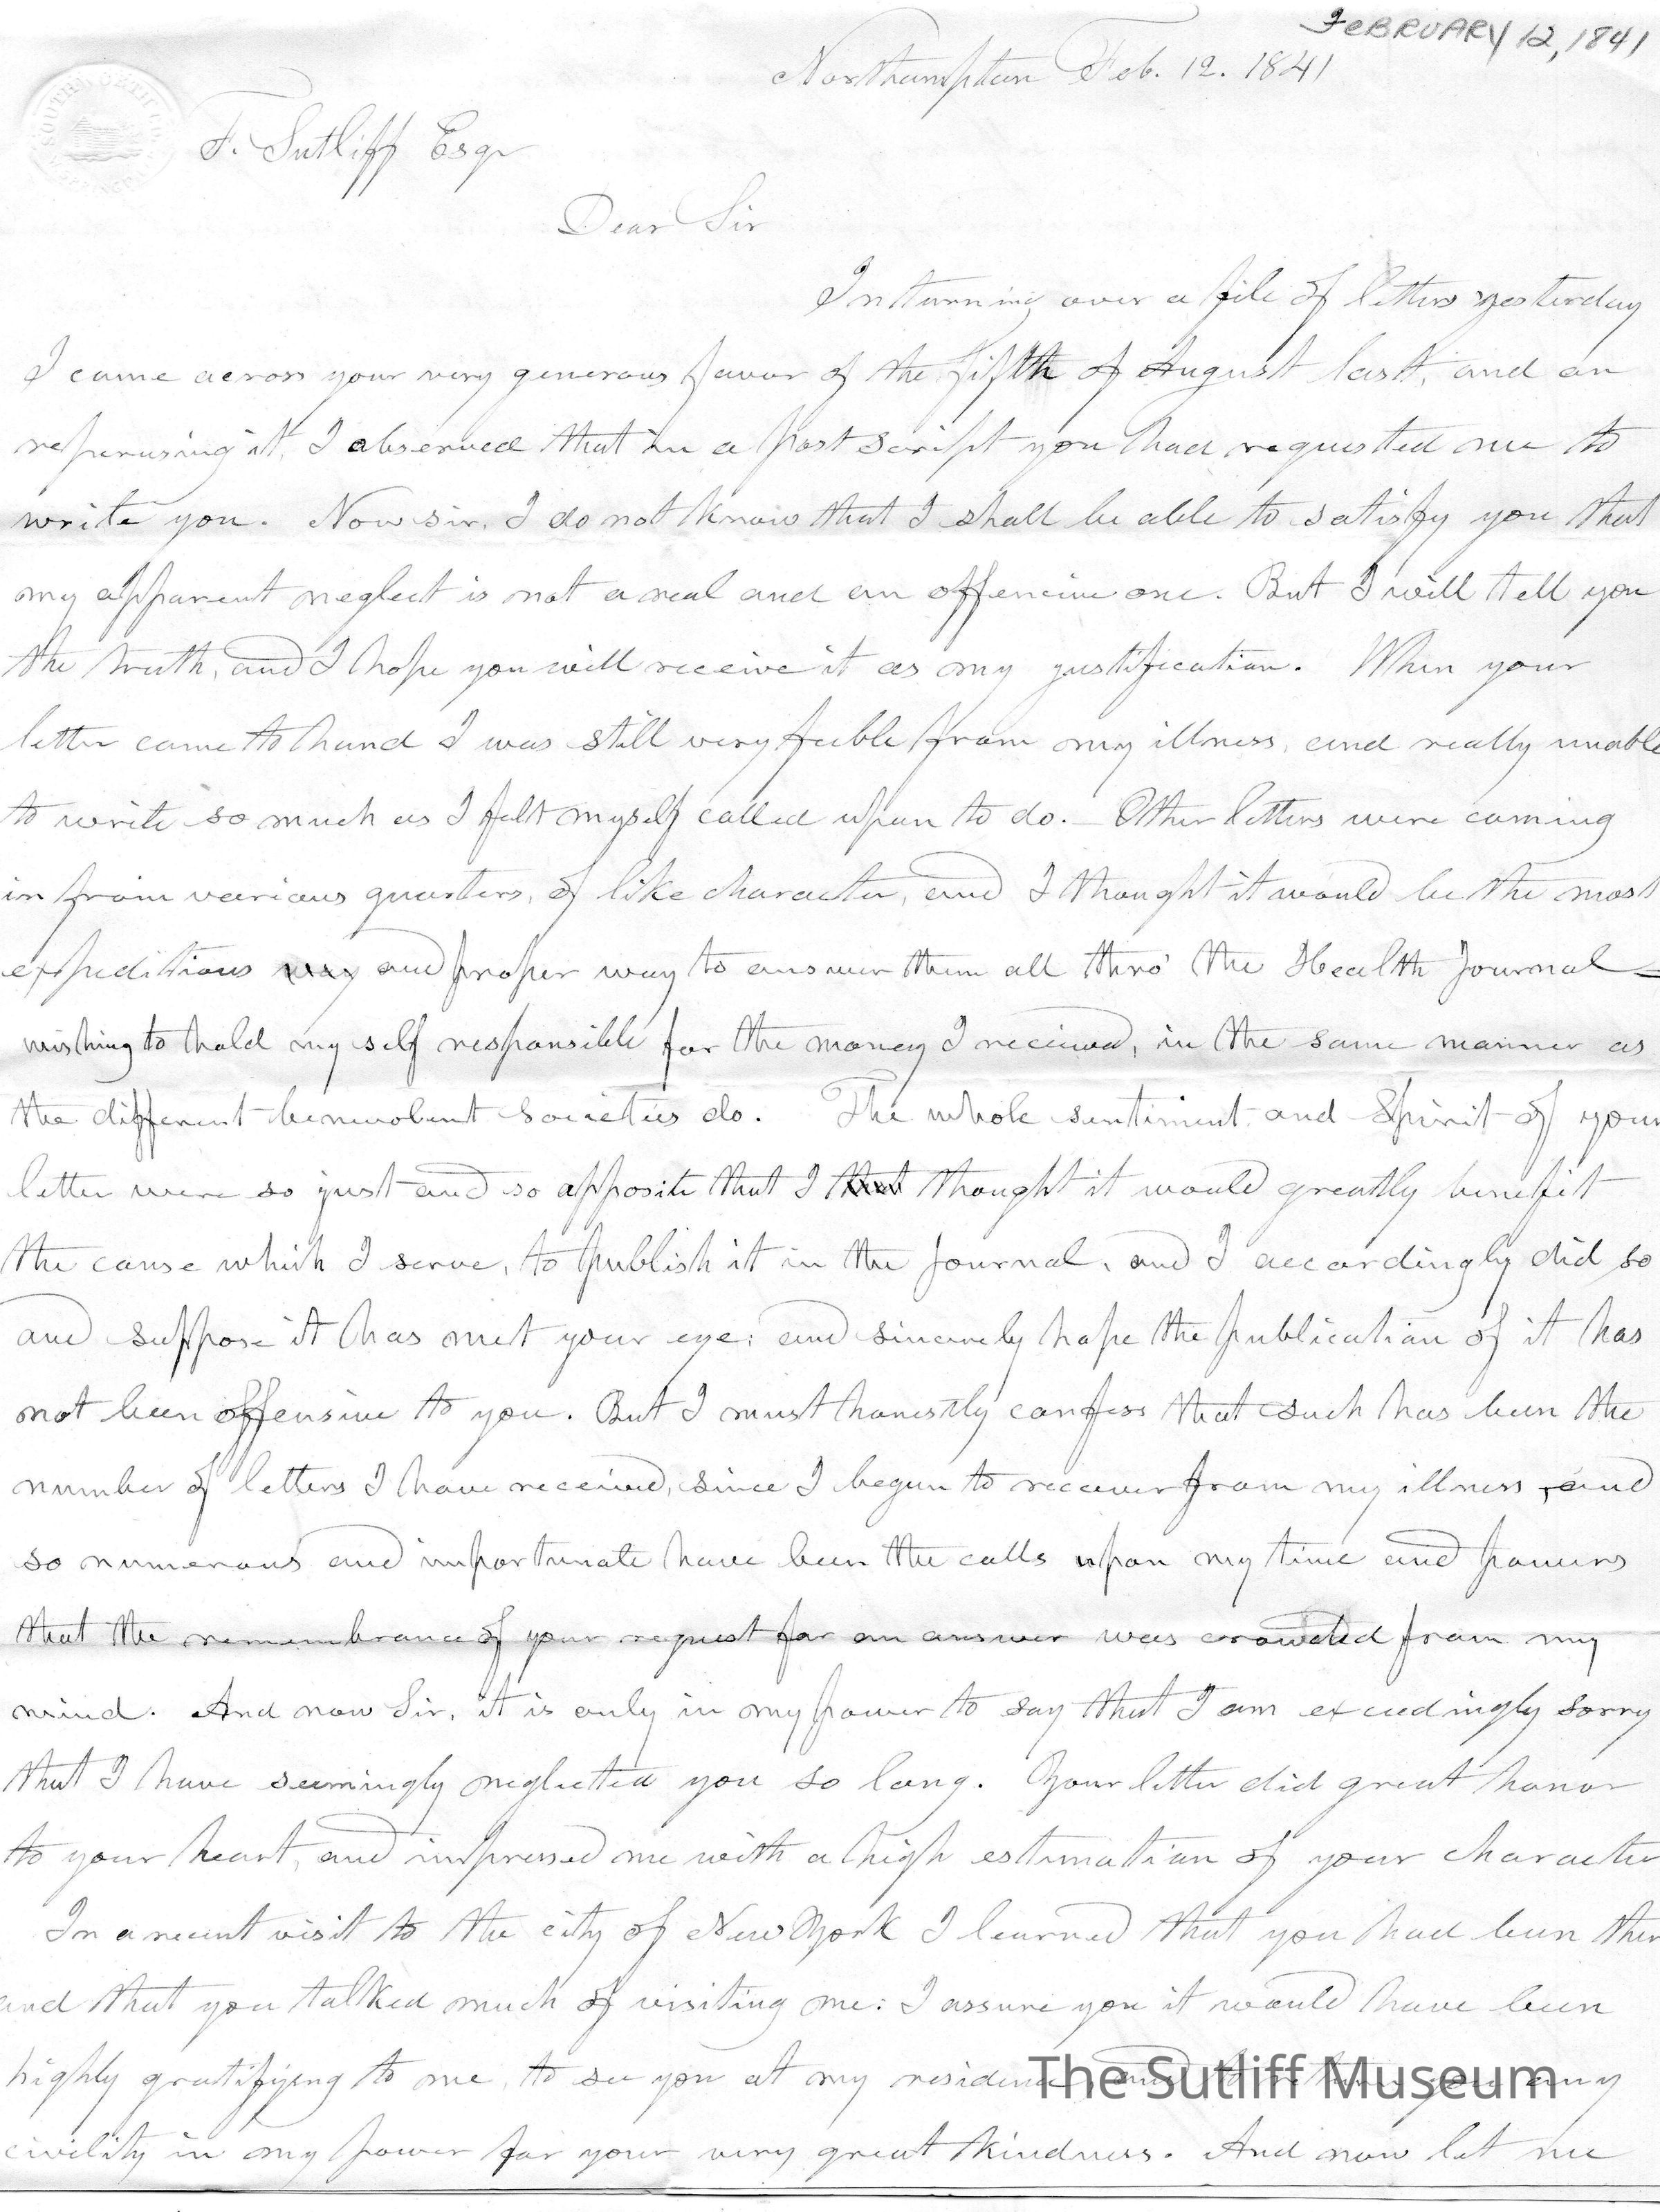 FEBRUARY 12, 1841
Northampton Feb. 12. 1841
F. Sutliff Esqr
Dear Sir
In turning over a file of letters yesterday
I came across your very generous favor of the fifth of August last, and on
reperusing it, I observed that in a post script you had requested me to
write you. Now sir, I do not know that I shall be able to satisfy you that
my apparent neglect is not a real and an offencive one. But I will tell you
the truth, and I hope you will receive it as my justification. When your
letter came to hand I was still very feeble from my illness, and really unable
to write so much as I felt myself called upon to do. Other letters were coming
in from various quarters, of like character, and I thought it would be the most
expeditious way and proper way to answer them all thro' the Health Journal
wishing to hold my self responsible for the money I received, in the same manner as
the different benevolent societies do. The whole sentiment and Spirit of your
letter were so just and so apposite that I that thought it would greatly benefit
the cause which I serve, to publish it in the Journal, and I accordingly did so
and suppose it has met your eye; and sincerely hope the publication of it has
not been offensive to you. But I must honestly confess that such has been the
number of letters I have received, since I begun to recover from my illness, and
so numerous and importunate have been the calls upon my time and powers
that the remembrance of your request for an answer was crowded from my
mind. And now Sir, it is only in my power to say that I am exceedingly sorry
that I have seemingly neglected you so long. Your letter did great honor
to your heart, and impressed me with a high estimation of your character
In a recent visit to the city of New York I learned that you had been ther
and that you talked much of visiting me: I assure you it would have been
highly gratifying to me, to see you at my residence, and to you any
civility in my power for your very great kindness. And now let me
The Sutliff Museum